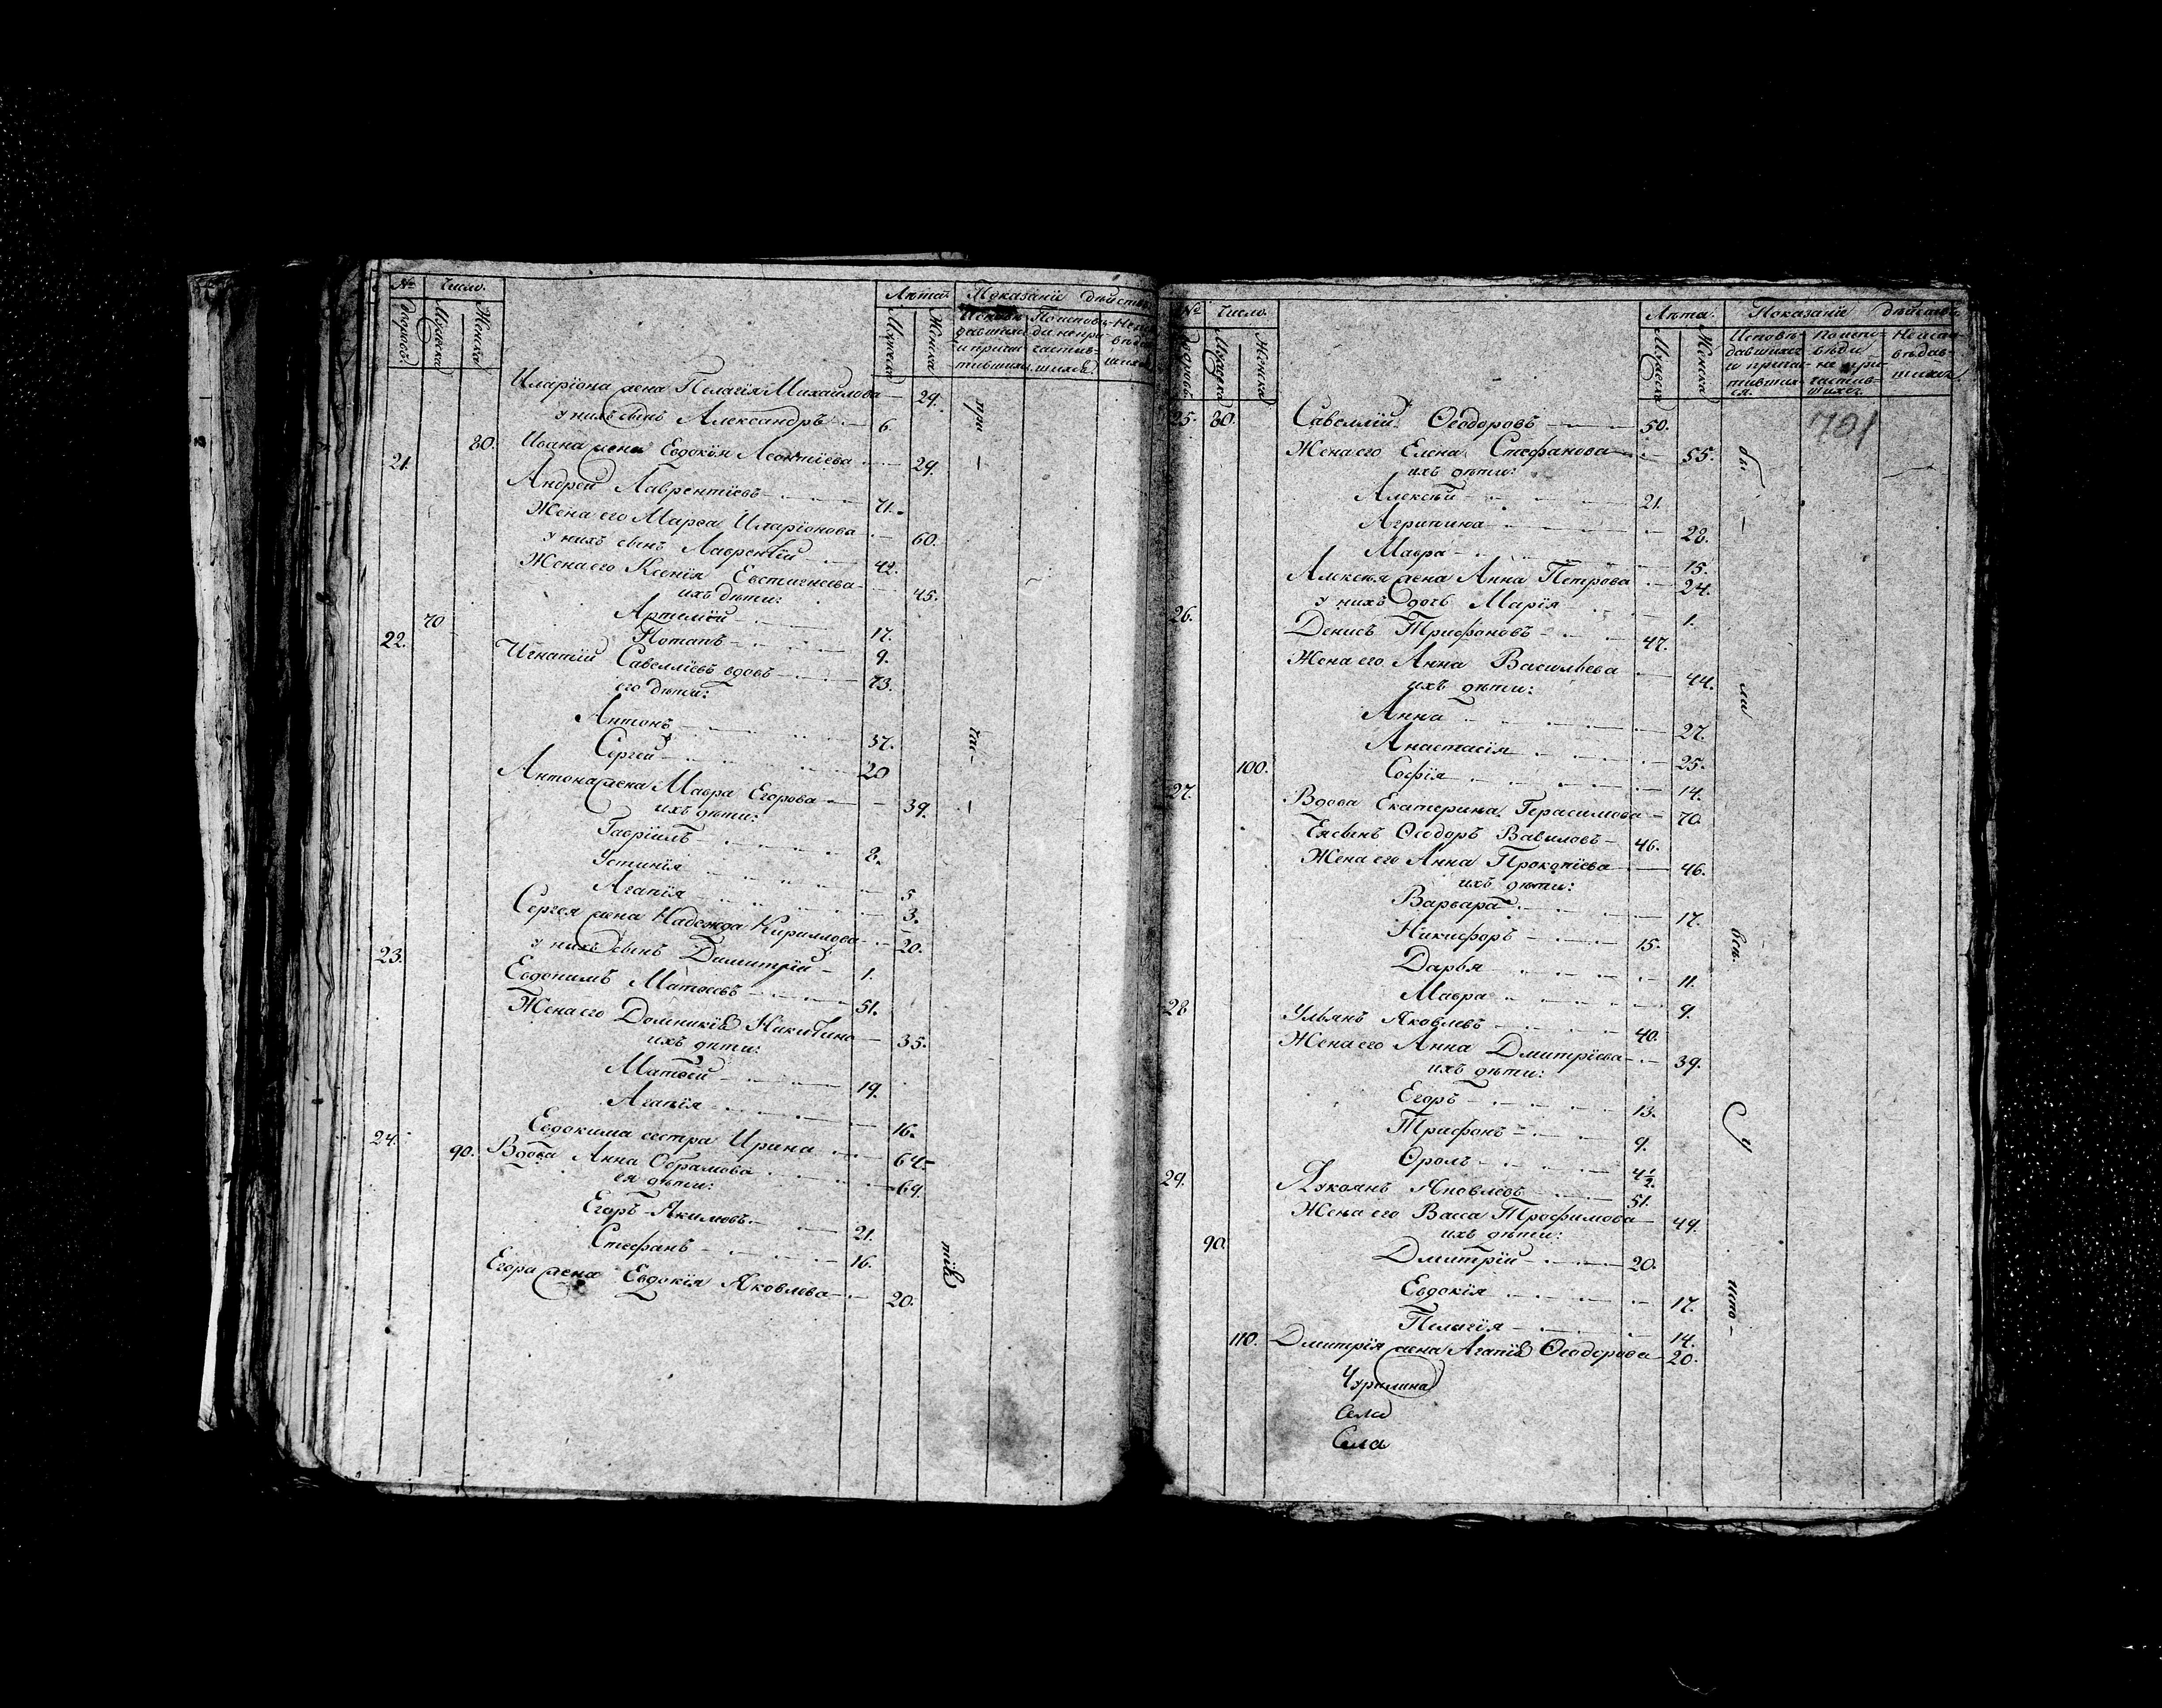 № Число. Лѣта. Показанiе дѣйства
Дворовъ. Мужеска Женска Мужеска Женска
давшихся
и прича-
тившихся
Иларiона жена Пелагiя Михайлова 29. при
у нихъ сынъ Александръ 6.
80. Ивана жена Евдокiя Леонтiева 29.
21. Андрей Лаврентiевъ 71.
Жена его Марѳа Иларiонова 60.
у нихъ сынъ Лаврентiй 42.
Жена его Ксенiя Евстигнѣева 45.
ихъ дѣти:
Артемiй 17.
70 Потапъ 9.
22. Игнатiй Савеллiевъ вдовъ 73.
его дѣти:
Антонъ 37.
Сергѣй 20
Антона жена Мавра Егорова 39.
ихъ дѣти:
Гаврiилъ 8.
Устинiя 5
Агапiя 3.
Сергея жена Надежда Кириллова 20.
у нихъ сынъ Димитрiй 1.
23. Евдокимъ Матѳеевъ 51.
Жена его Домникiя Никитина 35.
ихъ дѣти:
Матѳей 19.
Агапiя 16.
Евдокима сестра Ирина 64.
24. 90. Вдова Анна Обрамова 69.
ея дѣти:
Егоръ Якимовъ 21.
Стефанъ 16.
Егора жена Евдокiя Яковлева 20.
№ Число. Лѣта. Показанiе дѣйства
Мужеска Женска Мужеска Женска
Исповѣ- По испо- Не испо-
давшихся вѣди вѣдав-
и прича- не при- шихся.
тивших- частив-
ся. шихся.
701
25. 80. Савеллiй Ѳеодоровъ 50.
Жена его Елена Стефанова 55. бы-
ихъ дѣти:
Алексѣй 21.
Агрипина 28.
Мавра 15.
Алексѣя жена Анна Петрова 24.
у нихъ дочь Марiя 1.
26. Денисъ Трифоновъ 47.
Жена его Анна Васильева 44. ли
ихъ дѣти:
Анна 27.
Анастасiя 25.
100. Софiя 14.
27. Вдова Екатерина Герасимова 70.
Ея сынъ Ѳеодоръ Вавиловъ 46.
Жена его Анна Прокопiева 46.
ихъ дѣти:
Варвара 17.
Никифоръ 15.
Дарья 11.
Мавра 9.
28 Ульянъ Яковлевъ 40.
Жена его Анна Дмитрiева 39.
ихъ дѣти:
Егоръ 13.
Трифонъ 9.
Ѳролъ 4½.
29. Лукiянъ Яковлевъ 51.
Жена его Васса Трофимова 49.
ихъ дѣти:
90. Дмитрiй 20.
Евдокiя 17.
Пелагiя 14.
110. Дмитрiя жена Агапiя Ѳеодорова 20.
Чурилина
Села
Села